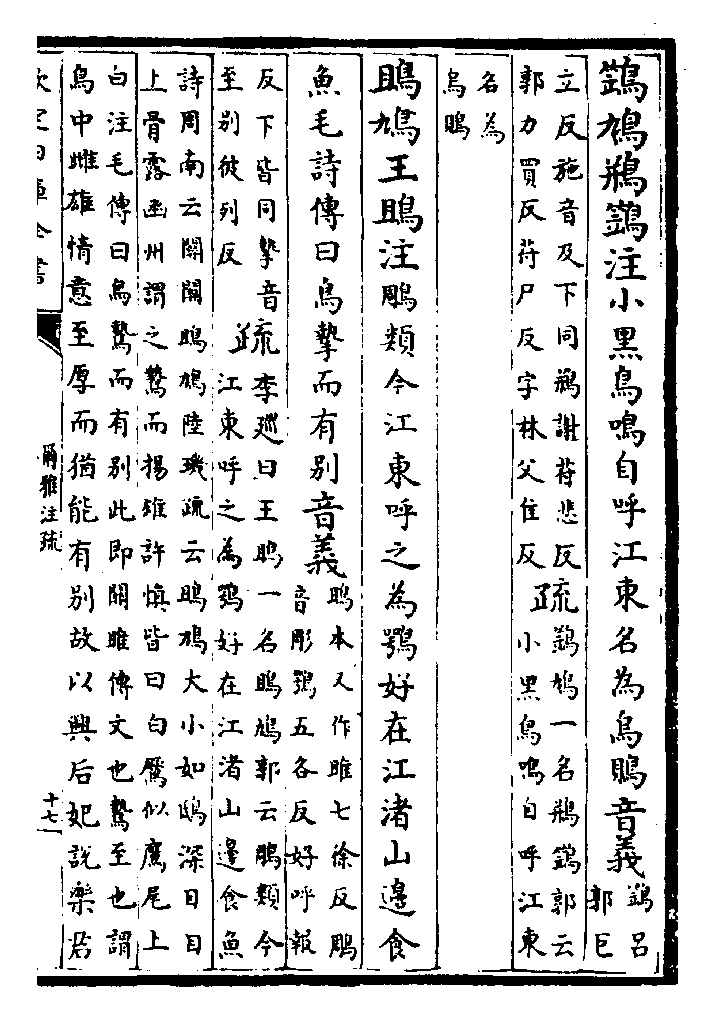 鷑鳩鵧鷑注小黑鳥鳴自呼江東名為烏鴔音義
鷑呂
郭巨
立反施音及下同鵧謝苻悲反
郭力買反苻尸反字林父隹反
疏
鷑鳩一名鵧鷑郭云
小黑鳥鳴自呼江東
名為
烏鴔
鴡鳩王鴡注鵰類今江東呼之為鶚好在江渚山邊食
魚毛詩傳曰鳥摯而有别音義
鴡本又作雎七徐反鵰
音彫鶚五各反好呼報
反下皆同摯音
至别彼列反
疏
李廵曰王鴡一名鴡鳩郭云鵰類今
江東呼之為鶚好在江渚山邊食魚
詩周南云關關鴡鳩陸璣疏云鴡鳩大小如鴟深目目
上骨露幽州謂之鷲而揚雄許慎皆曰白鷢似鷹尾上
白注毛傳曰鳥鷙而有别此即關雎傳文也鷙至也謂
鳥中雌雄情意至厚而猶能有别故以興后妃說樂君
欽定四庫全書
爾雅注疏
十七